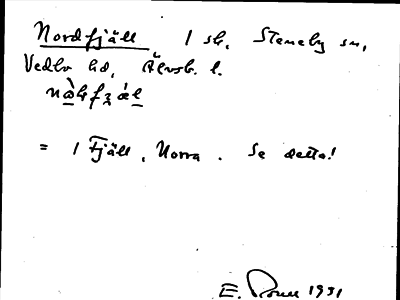 Nordfjäll 1 sk. Steneby sn,
Vedbo hd, Älvsb. l.
= 1 Fjäll, Norra. Se detta!
E. 1931